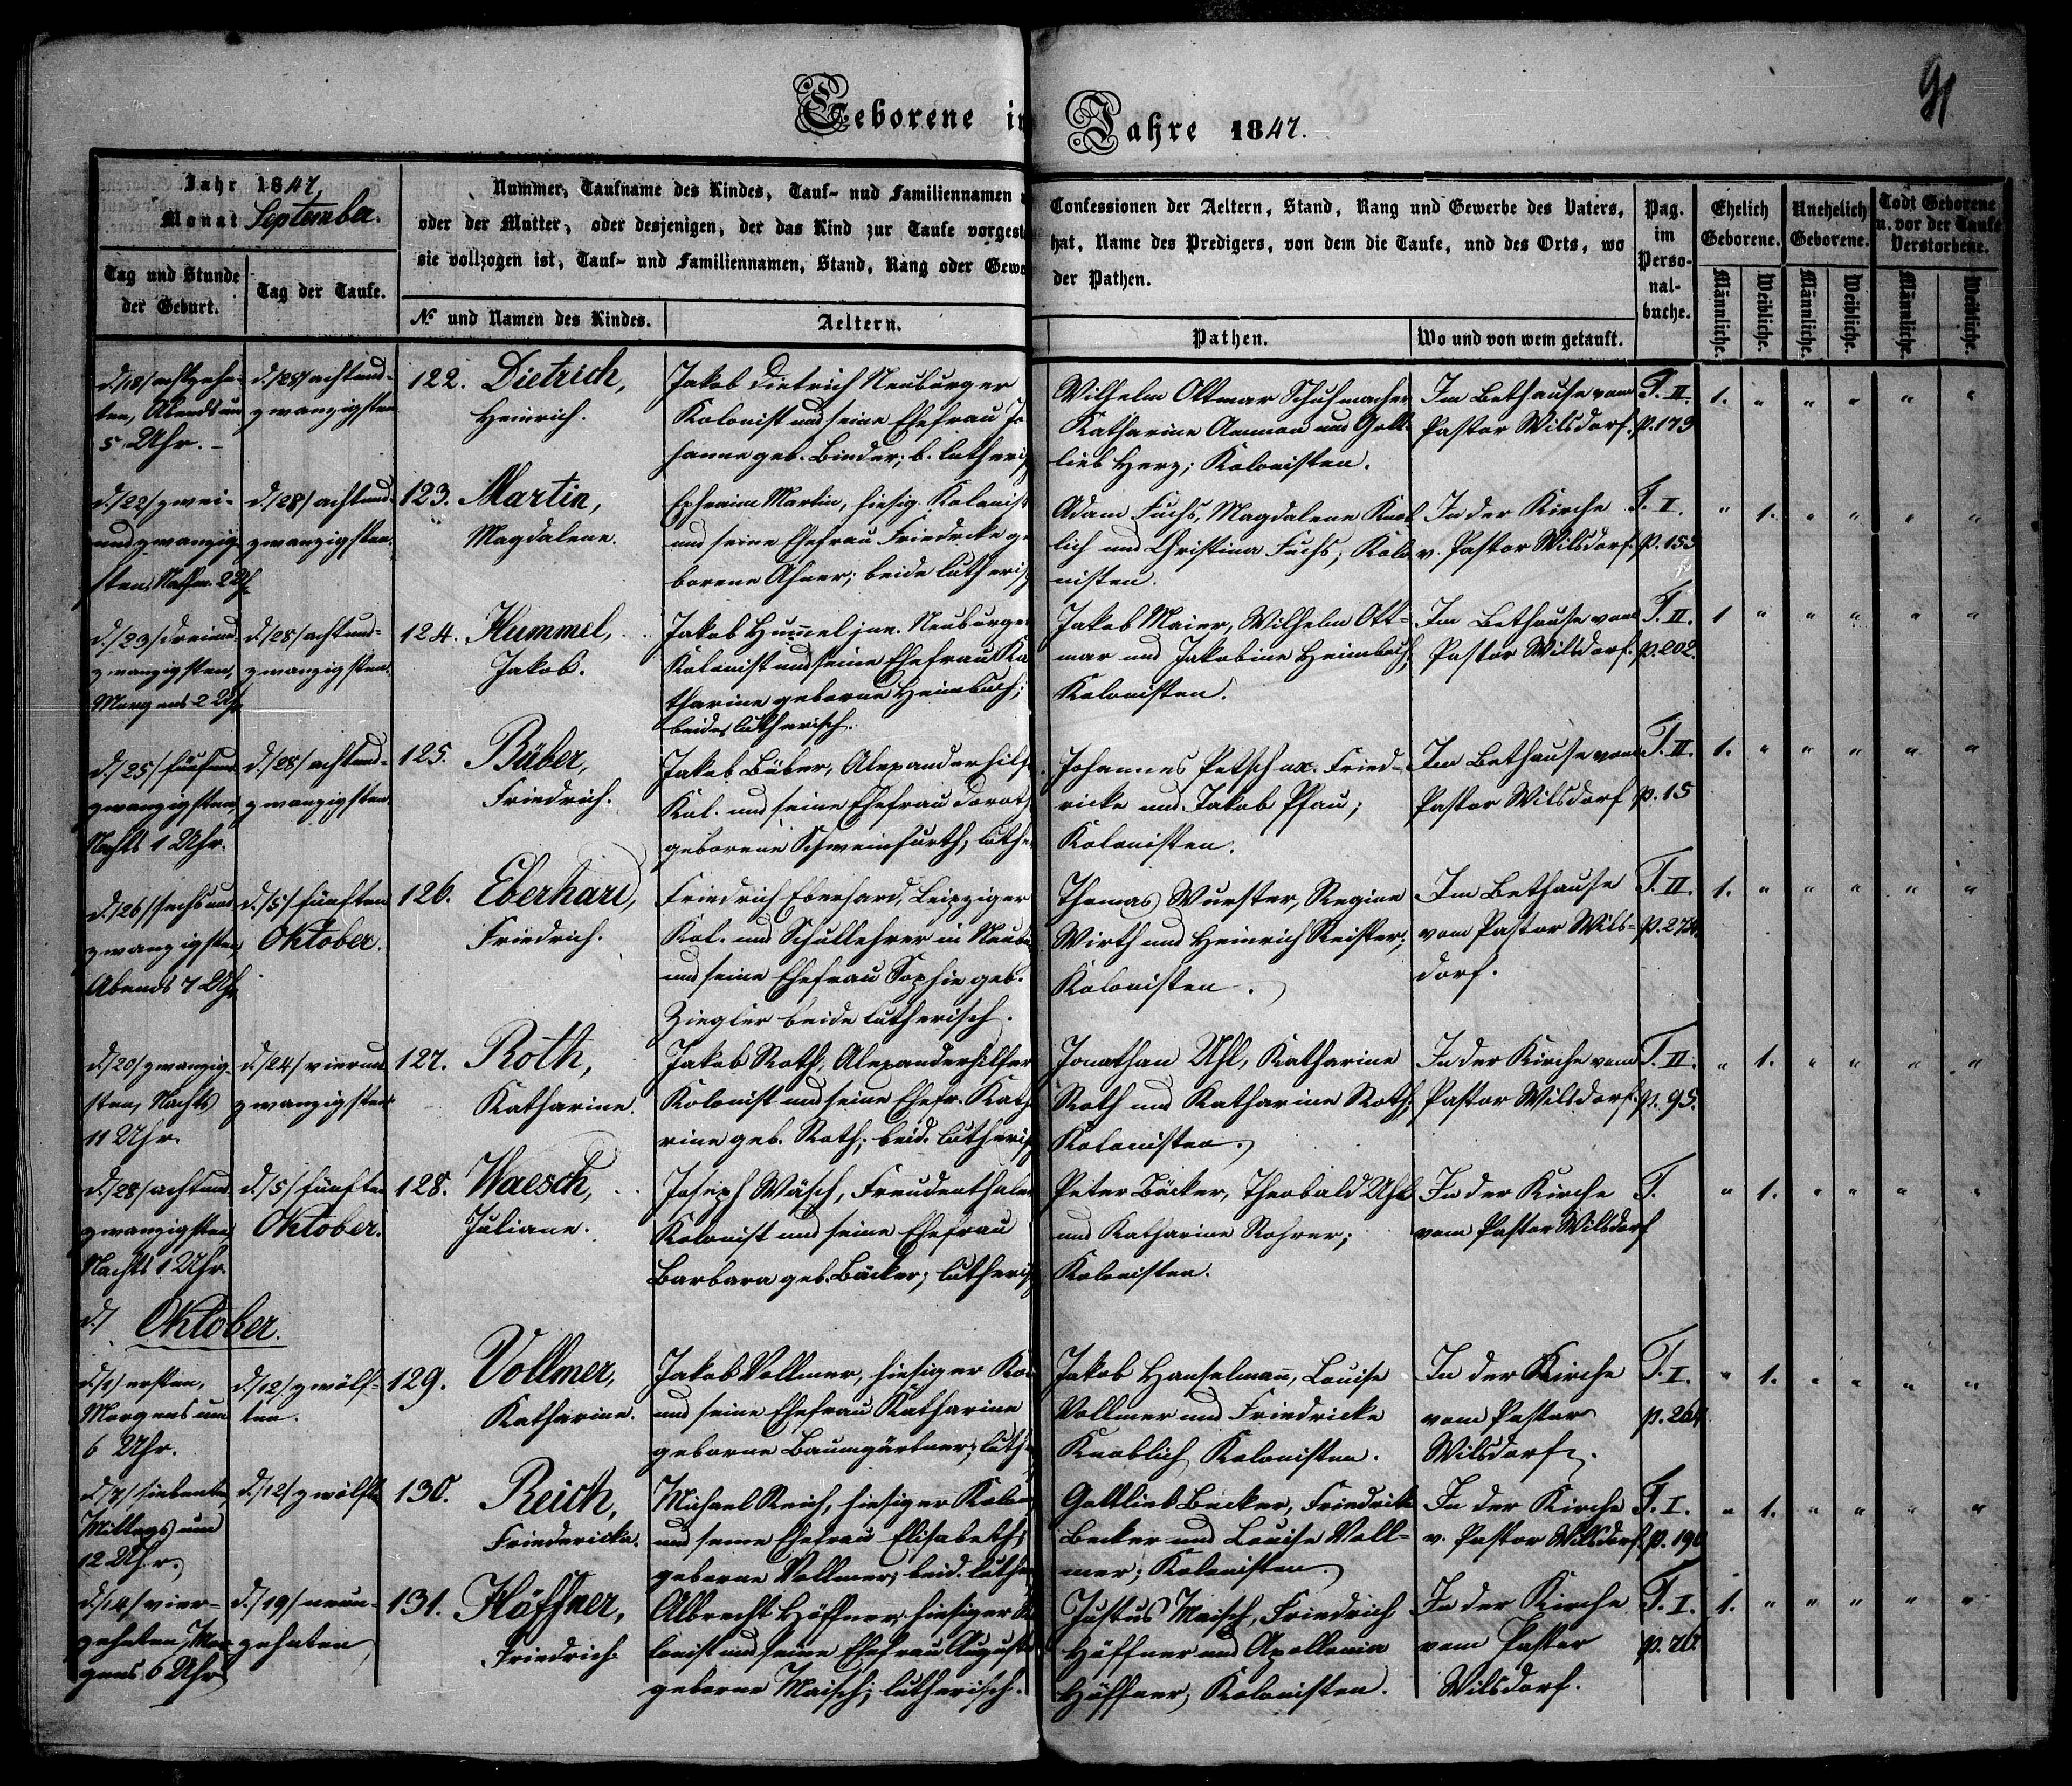 Geborene im Jahre 1847.
91
Jahr 1847,
Monat September.
Tag und Stunde
der Geburt.
Tag der Taufe.
Nummer, Taufname des Kindes, Tauf- und Familiennamen
oder der Mutter, oder desjenigen, der das Kind zur Taufe vorgest
sie vollzogen ist, Tauf- und Familiennamen, Stand, Rang oder Gewe
№ und Namen des Kindes.
Aeltern.
Confessionen der Aeltern, Stand, Rang und Gewerbe des Vaters,
hat, Name des Predigers, von dem die Taufe, und des Orts, wo
der Pathen.
Pathen.
Wo und von wem getauft.
Pag.
im
Perso-
nal-
buche.
Ehelich
Geborene.
Unehelich
Geborene.
Todt Geborene
u. vor der Taufe
Verstorbene.
Männliche.
Weibliche.
Männliche.
Weibliche.
Männliche.
Weibliche.
d./18/ achtzehn-
ten, Abends um
5 Uhr.
d./28/ achtund-
zwanzigsten
122. Dietrich,
Heinrich.
Jakob Dietrich Neuburger
Kolonist und seine Ehefrau Jo
hanne geb. Binder; b. lutheris
Wilhelm Ottmar Schuhmacher
Katharine Ammon und Gott-
lieb Herz; Kolonisten.
Im Bethause vom
Pastor Wilsdorf.
T. II.
p. 173
1. " " " " "
d./22/ zwei-
undzwanzig-
sten, Nachm. 2 Uhr
d./28/ achtund-
zwanzigsten.
123. Martin,
Magdalene.
Ephraim Martin, hiesig. Kolonist
und seine Ehefrau Friedricke ge
borene Ahner; beide lutheris
Adam Fuchs, Magdalene Knob
lich und Christina Fuchs, Kolo
nisten.
In der Kirche
v. Pastor Wilsdorf.
T. I.
p. 153
" 1. " " " "
d./23/ dreiund-
zwanzigsten,
Morgens 2 Uhr
d./28/ achtund-
zwanzigsten.
124. Hummel,
Jakob.
Jakob Hummel jun. Neuburger
Kolonist und seine Ehefrau Ka
tharine geborne Heimbuch;
beide lutherisch.
Jakob Maier, Wilhelm Ott-
mar und Jakobine Heimbuch,
Kolonisten.
Im Bethause vom
Pastor Wilsdorf.
T. II.
p. 202.
1 " " " " "
d./25/ fünfund-
zwanzigsten,
Nachts 1 Uhr.
d./28/ achtund-
zwanzigsten.
125. Büber,
Friedrich.
Jakob Büber, Alexanderhilf
Kol. und seine Ehefrau Doroth
geborene Schweinfurth, luthe
Johannes Petsch ux. Fried-
ricke und Jakob Pfau;
Kolonisten.
Im Bethause vom
Pastor Wilsdorf
T. II.
p. 15
1. " " " " "
d./26/ sechsund
zwanzigsten,
Abends 7 Uhr
d./5/ fünften
Oktober.
126. Eberhard,
Friedrich.
Friedrich Eberhard, Leipziger
Kol. und Schullehrer in Neub
und seine Ehefrau Sophie geb.
Ziegler beide lutherisch.
Thomas Wurster, Regine
Wirth und Heinrich Reister;
Kolonisten.
Im Bethause
vom Pastor Wils-
dorf.
T. II.
p. 274.
1. " " " " "
d./20/ zwanzig-
sten, Nachts
11 Uhr.
d./24/ vierund
zwanzigsten
127. Roth,
Katharine.
Jakob Roth, Alexanderhilfer
Kolonist und seine Ehefr. Kath
rine geb. Roth; beid. lutheris
Jonathan Uhl, Katharine
Roth und Katharine Roth,
Kolonisten.
In der Kirche vom
Pastor Wilsdorf.
T. II.
p. 95.
" 1. " " " "
d./28/ achtund
zwanzigsten,
Nachts 1 Uhr.
d./5/ fünften
Oktober.
128. Waesch,
Juliane.
Joseph Wäsch, Freudenthaler
Kolonist und seine Ehefrau
Barbara geb. Bäcker; lutheris
Peter Bäcker, Theobald Uhl
und Katharine Rohrer;
Kolonisten.
In der Kirche
vom Pastor Wilsdorf
T.
" 1. " " " "
d./ Oktober.
d./1/ ersten,
Morgens um
6 Uhr.
d./12/ zwölf-
ten.
129. Vollmer,
Katharine.
Jakob Vollmer, hiesiger Ko
und seine Ehefrau Katharine
geborne Baumgärtner; luth
Jakob Hanselmann, Louise
Vollmer und Friedricke
Knoblich, Kolonisten.
In der Kirche
vom Pastor
Wilsdorf.
T. I.
p. 264
" 1. " " " "
d./7/ siebenten,
Mittags um
12 Uhr.
d./12/ zwölften
130. Reich,
Friedericka.
Michael Reich, hiesiger Kolon
und seine Ehefrau Elisabeth,
geborne Vollmer; beid. luthe
Gottlieb Becker, Friedrike
Becker und Louise Voll-
mer; Kolonisten.
In der Kirche
v. Pastor Wilsdorf
T. I.
p. 190
" 1. " " " "
d./14/ vier-
zehnten, Mor-
gens 6 Uhr
d./19/ neun-
zehnten
131. Höffner,
Friedrich.
Albrecht Höffner, hiesiger Ko
lonist und seine Ehefrau August
geborne Maisch; lutherisch.
Justus Maisch, Friedrich
Höffner und Apollonia
Höffner, Kolonisten.
In der Kirche
vom Pastor
Wilsdorf.
T. I.
p. 76.
1. " " " " "